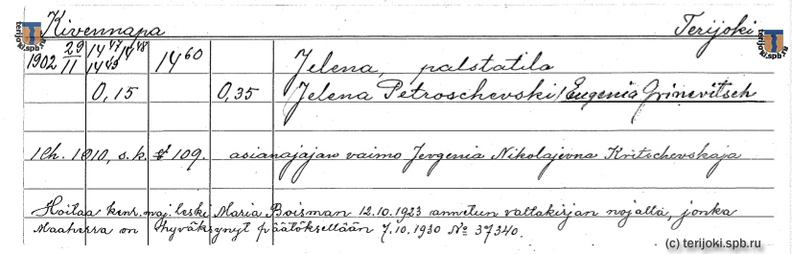 Kivennapa Terijoki
1902 29/11 14⁴⁷ 14⁴⁸ 14⁴⁹ 14⁶⁰ Jelena, palstatila
0,15 0,35 Jelena Petroschevski / Eugenia Grinevitsch
1 Ch. 1910, s.k. § 109. asianajajan vaimo Jevgenia Nikolajevna Kritschevskaja
Hoitaa kenr.maj. leski Maria Boisman 12.10.1923 annetun valtakirjan nojalla, jonka
Maaherra on hyväksynyt päätöksellään 7.10.1930 No 37340.
terijoki.spb.ru
terijoki.spb.ru
(c) terijoki.spb.ru